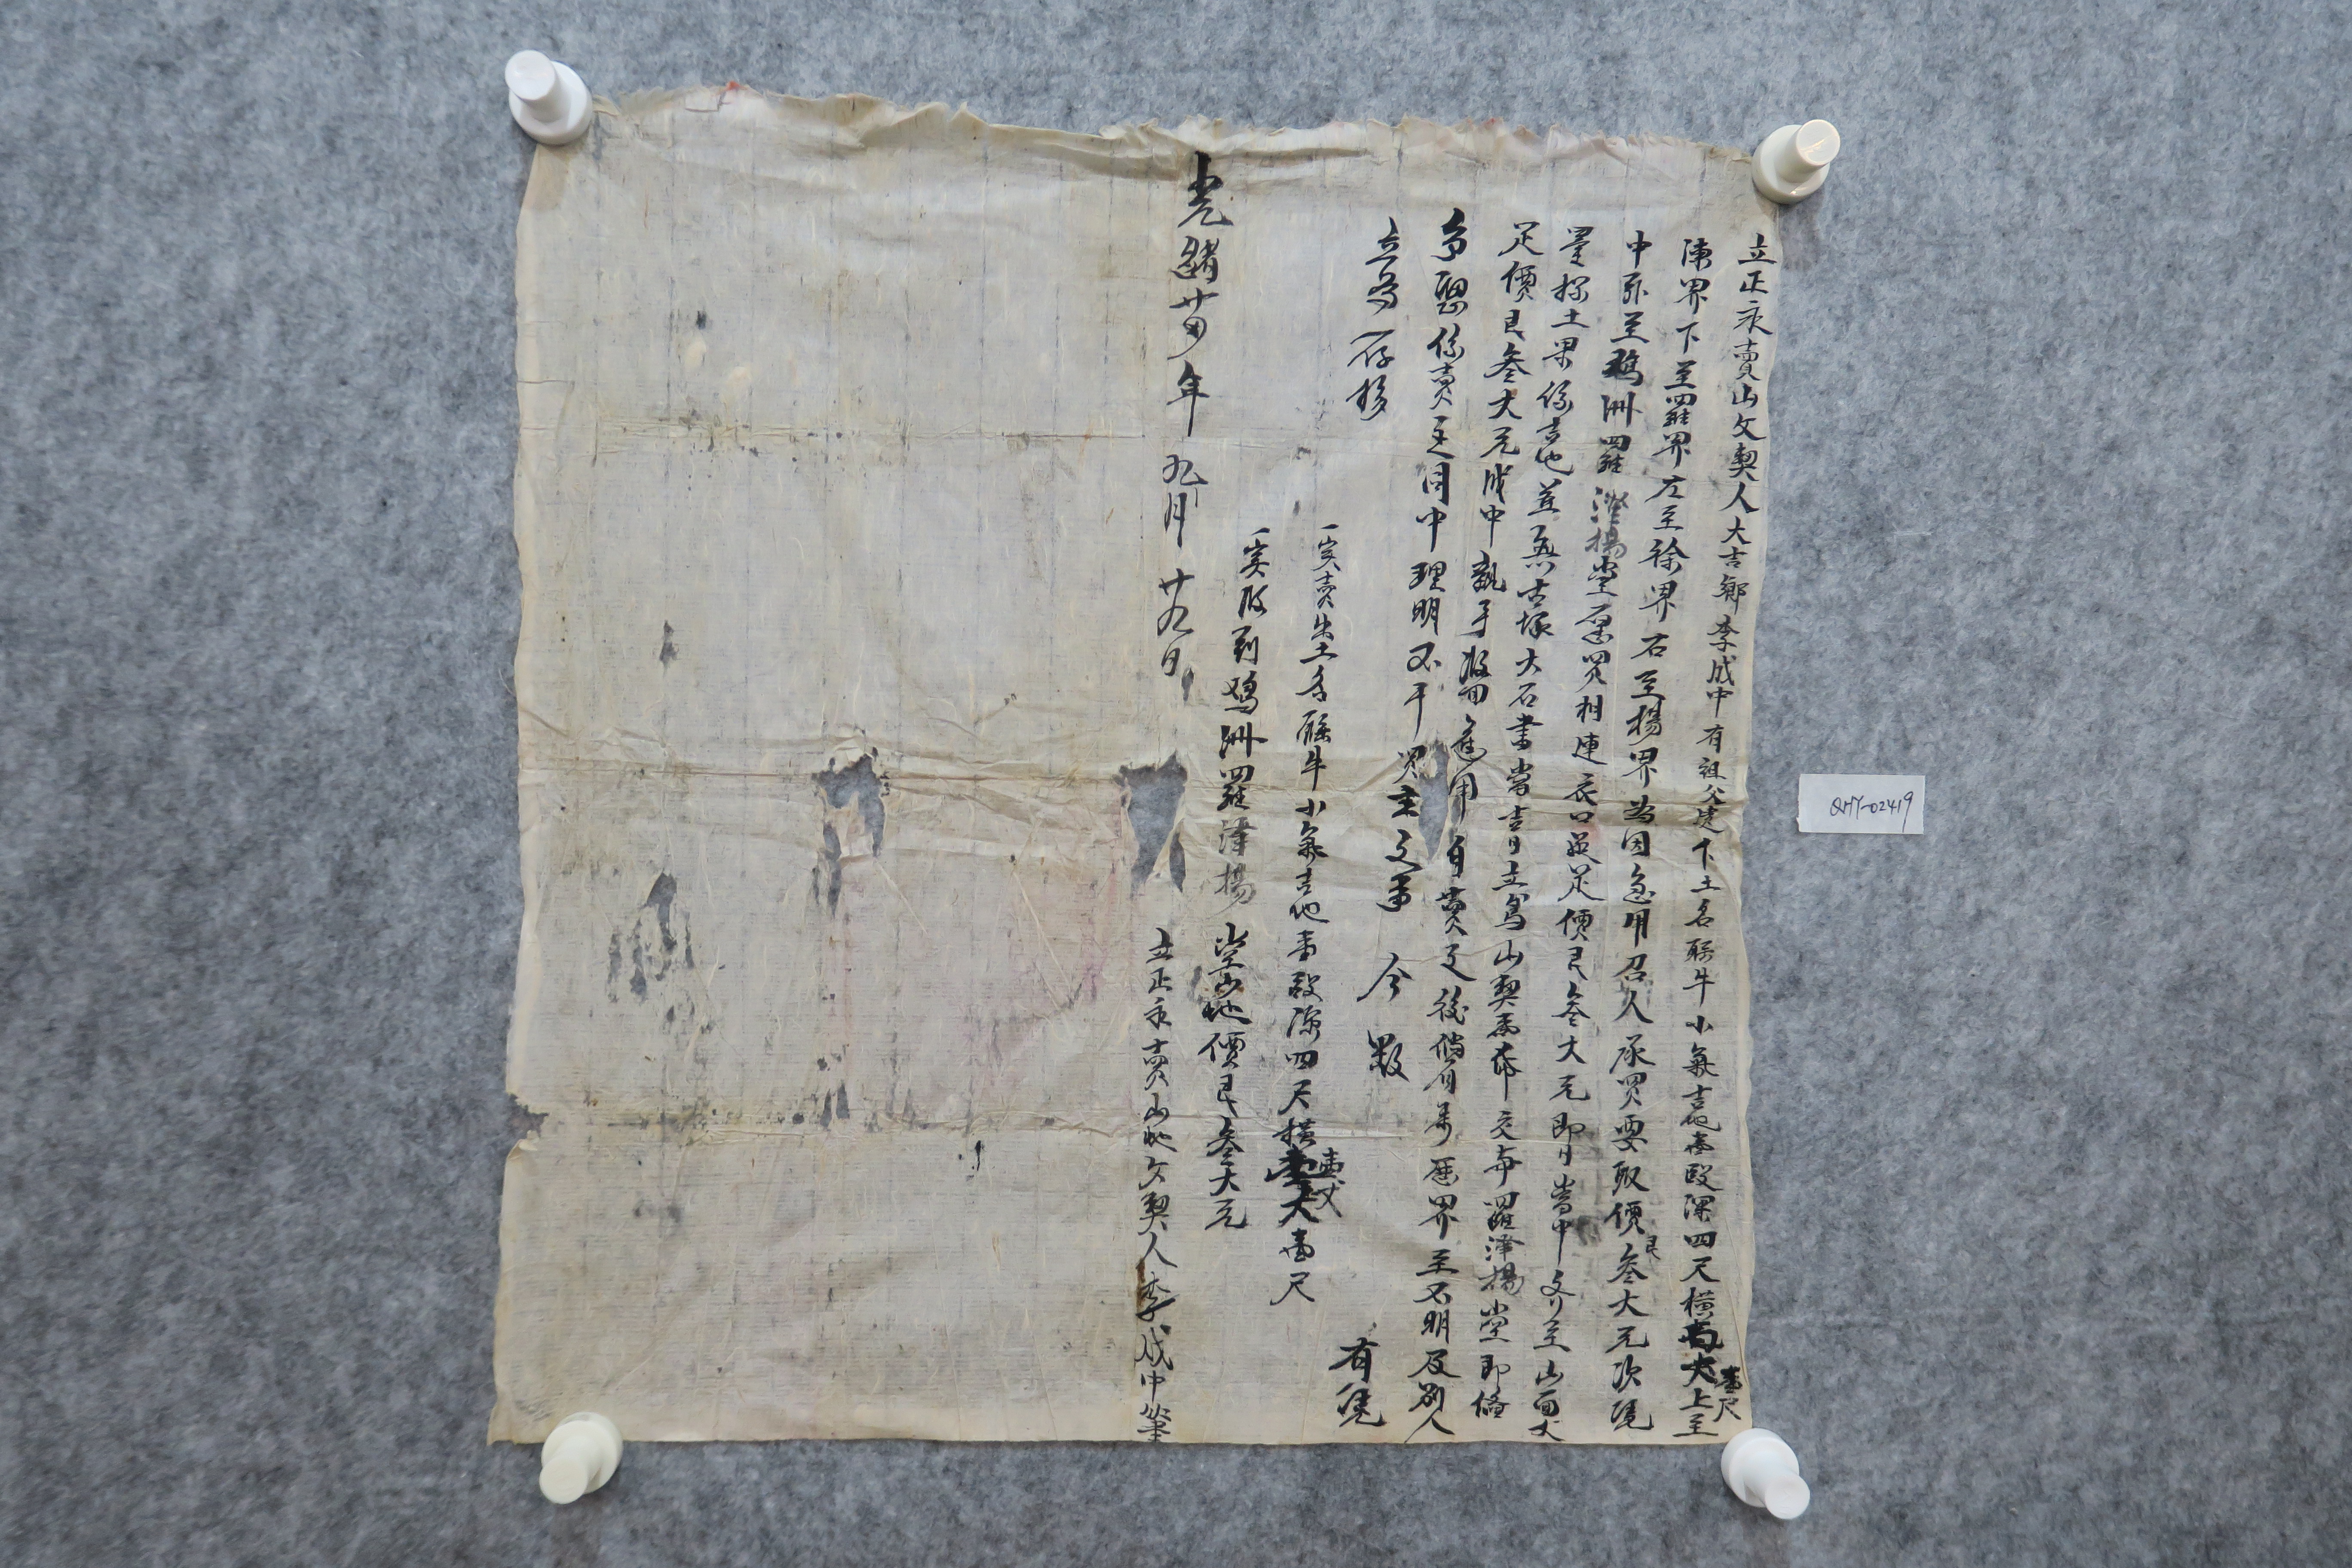 立正永賣山文契人大吉鄉李成中有祖父遺下土名騤牛小氣吉地壹段深四尺橫壹尺上至
陳界下至羅界左至徐界右至楊界為因急用召人承買要取價艮叁大元次憑
中孫至鵝洲羅澤揚堂愿買相連衣口並足價艮叁大元即日當中交至山面丈
量採土果係吉地並無古塚大石書當吉日立寫山契為券交與羅澤揚堂即俻
足價艮叁大元成中親手收回應用自賣之後倘有爭歷界至不明及別人
爭娶係賣主同中理明不干買主之事 今 欲 有憑
立寫存移
一実賣出土名騤牛小氣吉地壹段深四尺橫壹丈壹尺
一実收到鵝洲羅澤揚堂山地價艮叁大元
光緒廿四年九月廿九日
立正永賣山地文契人李成中筆
QHY-02419